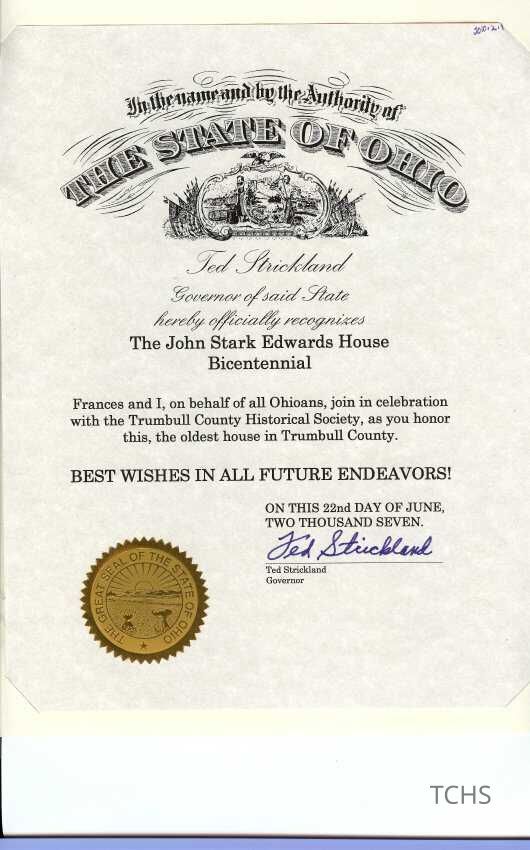 In the name and by the Authority of
THE STATE OF OHIO
Ted Strickland
Governor of said State
hereby officially recognizes
The John Stark Edwards House
Bicentennial
Frances and I, on behalf of all Ohioans, join in celebration
with the Trumbull County Historical Society, as you honor
this, the oldest house in Trumbull County.
BEST WISHES IN ALL FUTURE ENDEAVORS!
ON THIS 22nd DAY OF JUNE,
TWO THOUSAND SEVEN.
Ted Strickland
Ted Strickland
Governor
THE GREAT SEAL OF THE STATE OF OHIO
TCHS